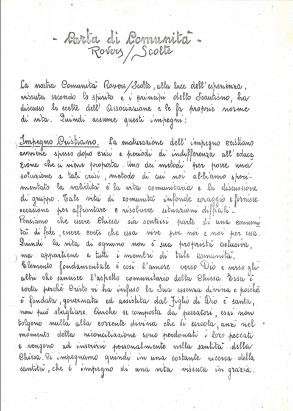 - Carta di Comunità -
Rovers/Scolte
La nostra Comunità Rovers/Scolte, alla luce dell'esperienza,
vissuta secondo lo spirito e i principi dello Scautismo, ha
discusso le scelte dell'Associazione e le fa proprie norme
di vita. Quindi assume questi impegni:
Impegno Cristiano. La maturazione dell'impegno cristiano
avviene spesso dopo crisi e periodi di indifferenza all'educa
zione che ci viene proposta. Uno dei metodi per porre una
soluzione a tali crisi, metodo di cui noi abbiamo speri-
mentato la validità è la vita comunitaria e la discussione
di gruppo. Tale vita di comunità infonde coraggio e fornisce
occasione per affrontare e risolvere situazioni difficili.
Pensiamo che essere Chiesa sia sentirsi parte di una comuni
tà di fede, essere certi che essa vive per noi e noi per essa.
Quindi la vita di ognuno non è sua proprietà esclusiva,
ma appartiene a tutti i membri di tale comunità.
Elemento fondamentale è così l'amore verso Dio e verso gli
altri che sancisce l'aspetto comunitario della Chiesa. Essa è
sorta perché Cristo vi ha infuso la Sua essenza divina e poiché
è fondata, governata ed assistita dal Figlio di Dio è santa,
non può sbagliare. Anche se composta da peccatori, essi non
tolgono nulla alla corrente divina che li circola, anzi nel
momento della riconciliazione sono perdonati i loro peccati
e vengono ad inserirsi personalmente nella santità della
Chiesa. Ci impegniamo quindi in una costante ricerca della
santità, che è impegno di una vita vissuta in grazia.